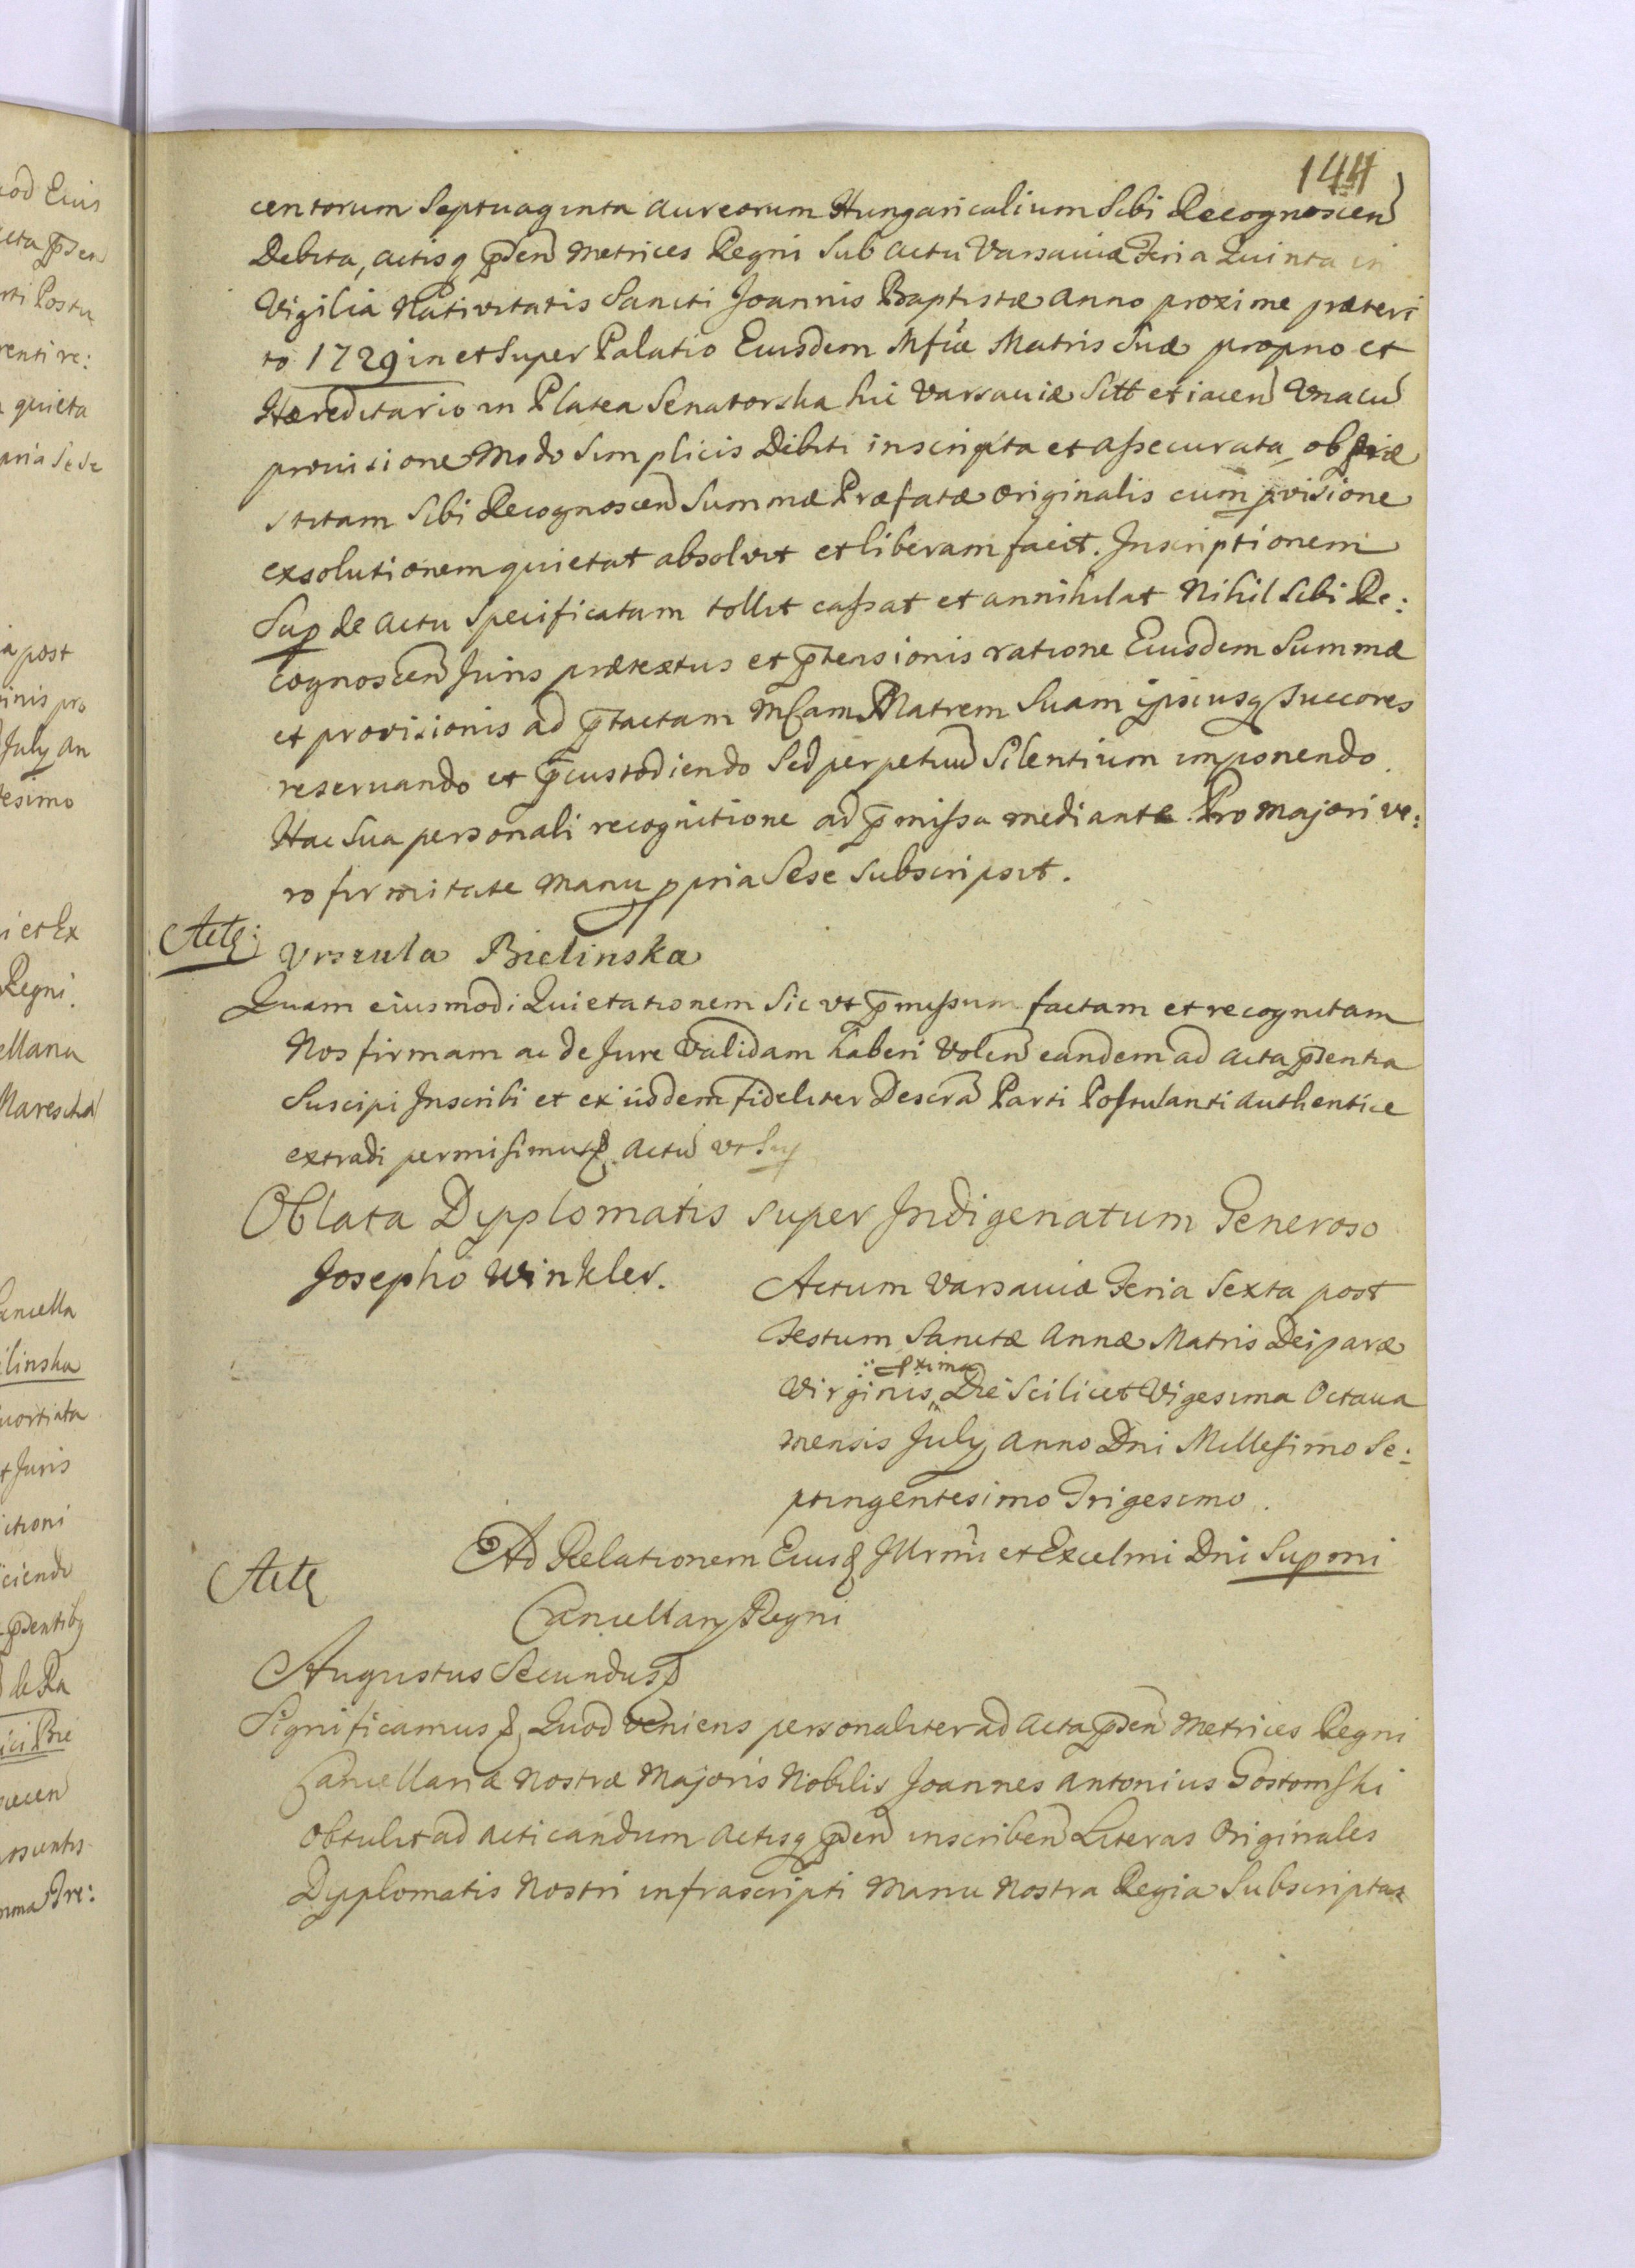 144
centorum Septuaginta aureorum Hungaricalium Sibi Recognoscen
Debita, actisq pden Metrices Regni Sub actu Varsaviæ Feria Quinta in
Vigilia Nativitatis Sancti Joannis Baptistæ anno proxime præteri
to 1729 in et Super Palatio Eiusdem Mfcæ Matris Suæ proprio et
Hæreditario in Platea Senatorska hic Varsaviæ Sitt et iacen Vnacu
provisione Modo Simplicis Debiti inscripta et assecurata, ob
stitam Sibi Recognoscen Summæ Præfatæ originalis cum pvisione
exsolutionem quietat absolvit et liberam facit. Inscriptionem
Sup de actu Specificatam tollit cassat et annihilat Nihil Sibi Re:
cognoscen Juris prætextus et ptensionis ratione Eiusdem Summæ
et provisionis ad ptactam Mfcam Matrem Suam ipsiusq Succores
reservando et pcustodiendo Sed perpetuu Silentium imponendo.
Hac Sua personali recognitione ad pmissa mediante. Pro majori ve:
ro firmitate manu ppria Sese Subscripsit.
Actq: Vrszula Bielinska
Quam eiusmodi Quietationem Sic vt pmissum factam et recognitam
Nos firmam ac de Jure Validam haberi Volen eandem ad acta pdentia
Suscipi Inscribi et ex iisdem fideliter Descra Parti Postulanti authentice
extradi permisimus actu vt Sup
Oblata Dyplomatis super Indigenatum Generoso
Josepho Winkler.
Actum Varsaviæ Feria Sexta post
Festum Sanctæ Annæ Matris Deiparæ
pxima
Virginis, Die Scilicet Vigesima Octava
mensis July anno Dni Millesimo Se:
ptingentesimo Trigesimo.
Actq Ad Relationem Eiusq Illrmi et Excelmi Dni Supmi
Cancellary Regni
Augustus Secundus
Significamus Quod veniens personaliter ad acta pden Metrices Regni
Cancellariæ Nostræ Majoris Nobilis Joannes Antonius Gostomski
obtulit ad acticandum actisq pden inscriben Literas Originales
Dyplomatis Nostri infrascripti Manu Nostra Regia Subscriptas